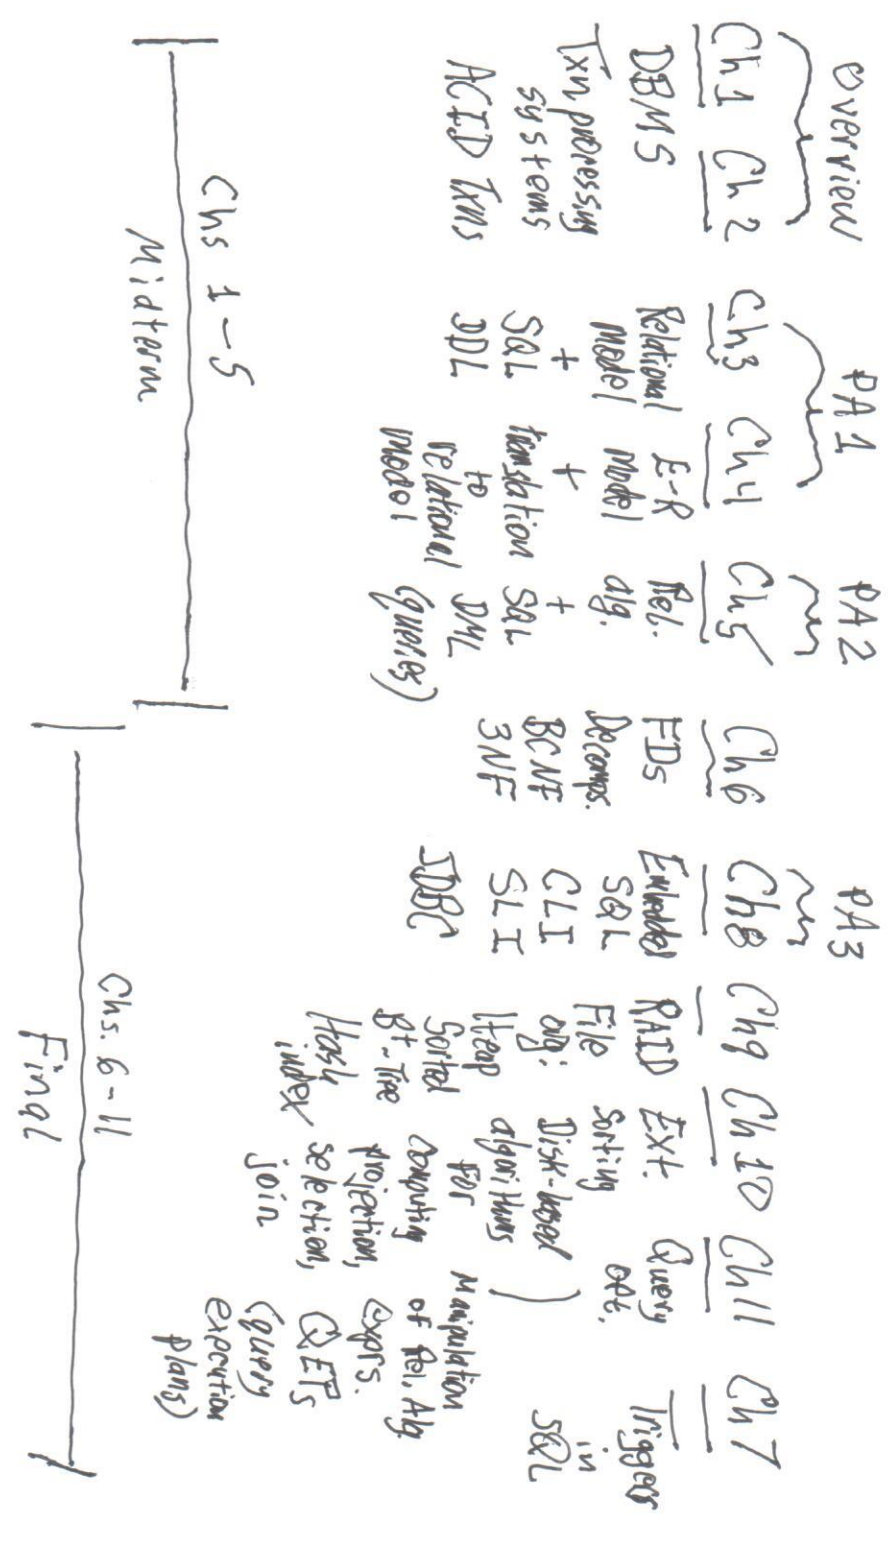 Overview
PA 1
PA 2
PA3
Ch 1
Ch 2
DBMS
Txn processing
systems
ACID Txns
Ch3
Relational
model
+
SQL
DDL
Ch4
E-R
Model
+
translation
to
relational
model
Ch5
Rel.
alg.
+
SQL
DML
(queries)
Ch6
FDs
Decomps.
BCNF
3NF
Ch8
Embedded
SQL
CLI
SLI
JDBC
Ch9
RAID
File
org:
Heap
Sorted
B+-Tree
Hash
index
Ch 10
Ext.
Sorting
Disk-based
algorithms
for
computing
projection,
selection,
join
Ch11
Query
opt.
Manipulation
of Rel. Alg
exprs.
QEPs
(query
execution
plans)
Ch 7
Triggers
in
SQL
Chs 1-5
Midterm
Chs. 6-11
Final